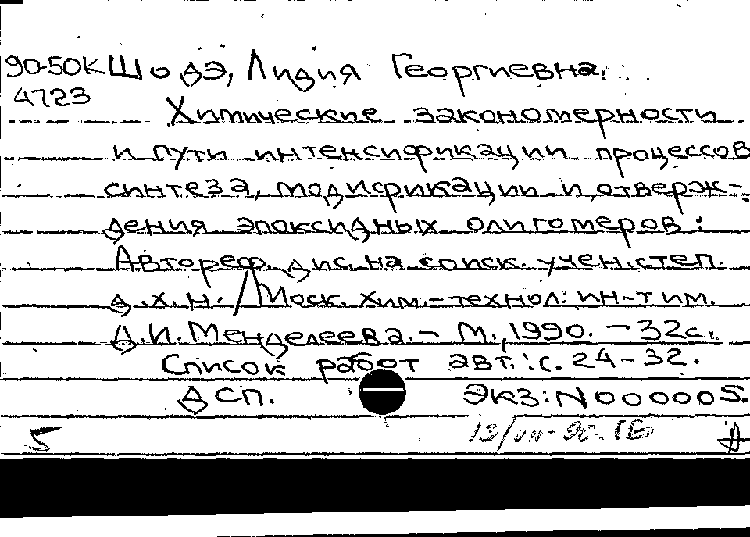 90-50К Шодэ, Лидия Георгиевна.
4723
Химические закономерности
и пути интенсификации процессов
синтеза, модификации и отверж-
дения эпоксидных олигомеров:
Автореф. дис. на соиск. учен. степ.
д.х.н. / Моск. хим.-технол. ин-т им.
Д.И. Менделеева. - М., 1990. - 32с.
Список работ авт.: с. 24-32.
ДСП. Экз: N000005.
5